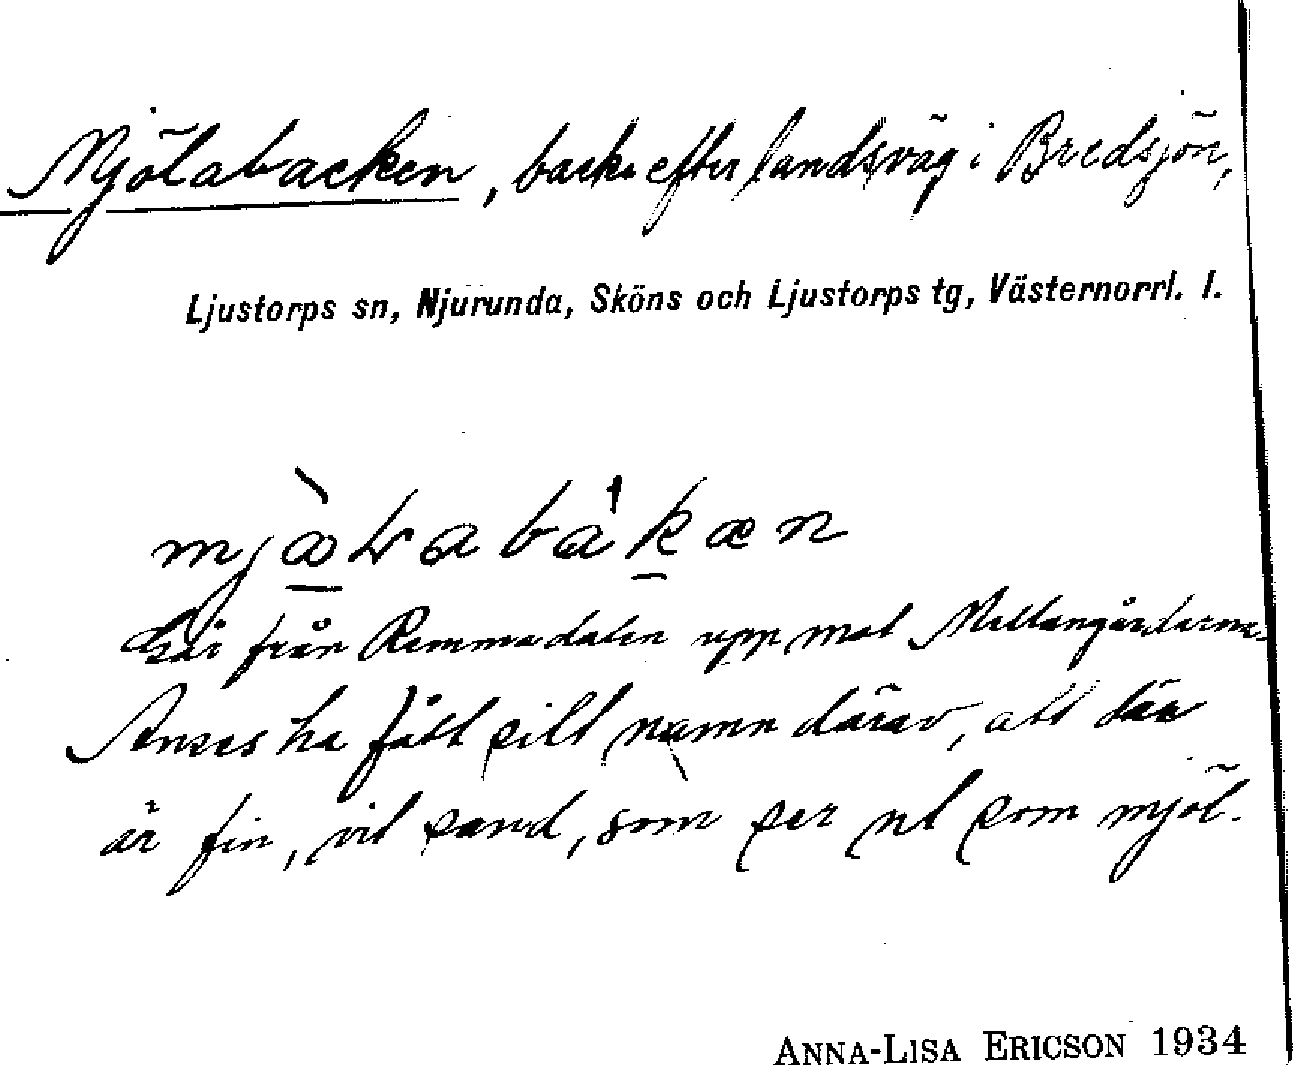 Mjölabacken, backe efter landsväg i Bredsjön,
Ljustorps sn, Njurunda, Sköns och Ljustorps tg, Västernorrl. l.
Går från Remmadalen upp mot Mellangårdarna.
Anses ha fått sitt namn därav, att där
är fin, vit sand, som ser ut som mjöl.
ANNA-LISA ERICSON 1934